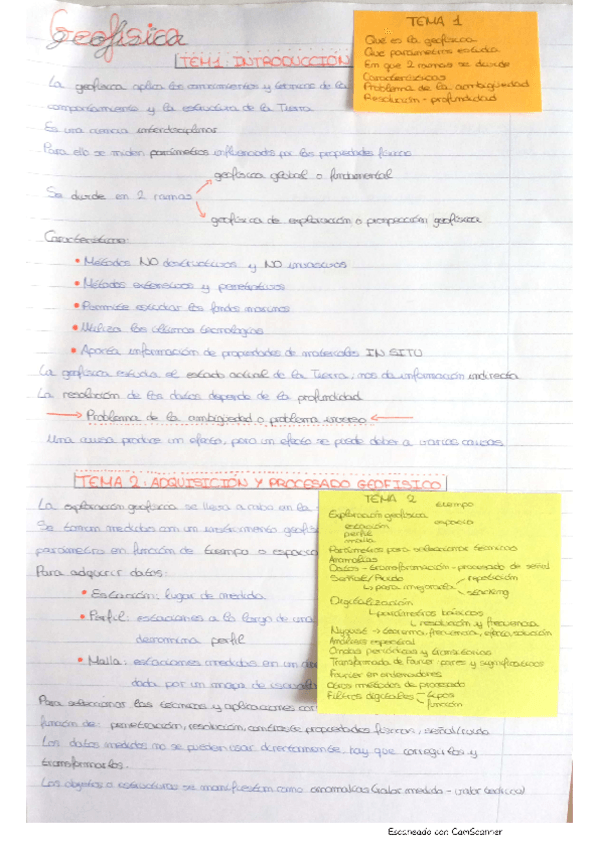 Geofísica
TEMA 1
Qué es la geofísica
Que parámetros estudia
En que 2 ramas se divide
Características
Problema de la ambigüedad
Resolución - profundidad
TEMA 1: INTRODUCCIÓN
La geofísica aplica los conocimientos y técnicas de la
comportamiento y la estructura de la Tierra.
Es una ciencia interdisciplinar
Para ello se miden parámetros influenciados por las propiedades físicas
geofísica global o fundamental
Se divide en 2 ramas
geofísica de exploración o prospección geofísica
Características:
• Métodos NO destructivos y NO invasivos
• Métodos extensivos y penetrativos
• Permite estudiar los fondos marinos
• Utiliza las últimas tecnologías
• Aporta información de propiedades de materiales IN SITU
La geofísica estudia el estado actual de la Tierra; nos da información indirecta
La resolución de los datos depende de la profundidad
→ Problema de la ambigüedad o problema inverso ←
Una causa produce un efecto, pero un efecto se puede deber a varias causas
TEMA 2: ADQUISICIÓN Y PROCESADO GEOFÍSICO
TEMA 2
Exploración geofísica
tiempo
espacio
estación
perfil
malla
Parámetros para seleccionar técnicas
Anomalías
Datos - transformación - procesado de señal
Señal/Ruido
repetición
para mejorarla
stacking
Digitalización
parámetros básicos
resolución y frecuencia
Nyquist → teorema, frecuencia, efecto, solución
Análisis espectral
Ondas periódicas y transitorias
Transformada de Fourier: pares y significativos
Fourier en ordenadores
Otros métodos de procesado
Filtros digitales
tipos
función
La exploración geofísica se lleva a cabo en la
Se toman medidas con un instrumento geofís
parámetro en función de tiempo o espacio
Para adquirir datos:
• Estación: lugar de medida
• Perfil: estaciones a lo largo de una
denomina perfil
• Malla: estaciones medidas en un
dada por un mapa de
Para seleccionar las técnicas y aplicaciones
función de: penetración, resolución, contraste propiedades físicas, señal/ruido
Los datos medidos no se pueden usar directamente, hay que corregirlos y
transformarlos.
Los objetos o estructuras se manifiestan como anomalías (valor medido - valor teórico)
Escaneado con CamScanner